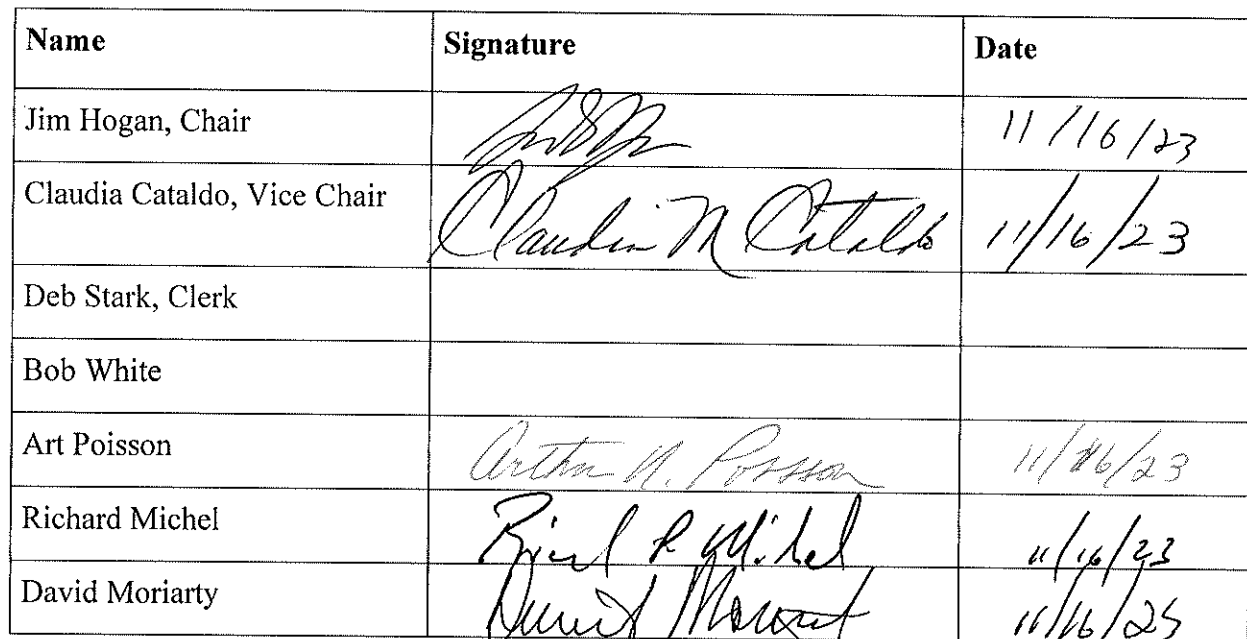 Name Signature Date
Jim Hogan, Chair 11/16/23
Claudia Cataldo, Vice Chair Claudia M Cataldo 11/16/23
Deb Stark, Clerk
Bob White
Art Poisson Arthur N. Poisson 11/16/23
Richard Michel Richard R Michel 11/16/23
David Moriarty David Moriarty 11/16/23